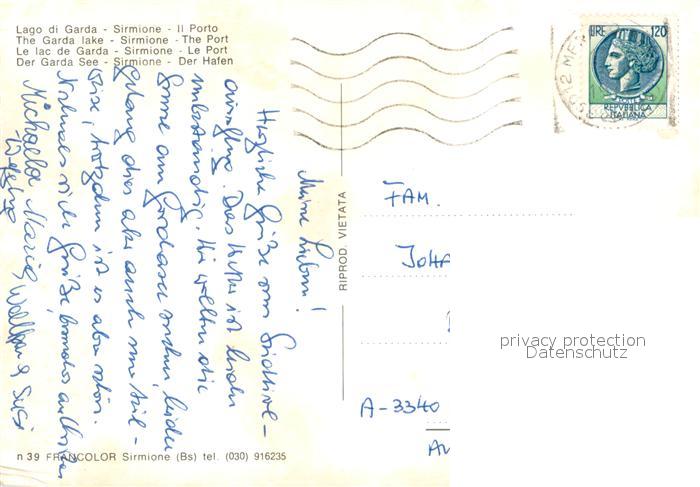 Lago di Garda - Sirmione - Il Porto
The Garda lake - Sirmione - The Port
Le lac de Garda - Sirmione - Le Port
Der Garda See - Sirmione - Der Hafen
LIRE 120
POSTE
REPVBBLICA
ITALIANA
Meine Lieben!
Herzliche Grüße vom Südtirol-
ausflug. Das Wetter ist leider
unbeständig. Wir wollten die
Sonne am Gardasee suchen, leider
gelang dies aber auch nur teil-
weise, trotzdem ist es aber schön.
viele Grüße, besonders
Michaela Maria & Susi
RIPROD. VIETATA
FAM.
JOHA
A-3340
privacy protection
Datenschutz
n 39 FRANCOLOR Sirmione (Bs) tel. (030) 916235